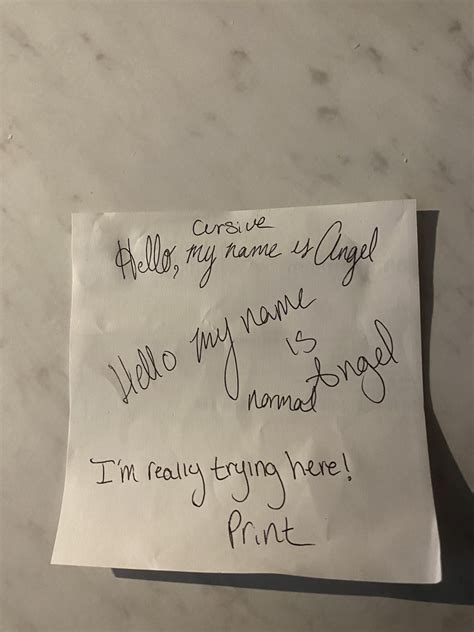 Cursive
Hello, my name is Angel
Hello my name
is
Angel
normal
I'm really trying here!
Print